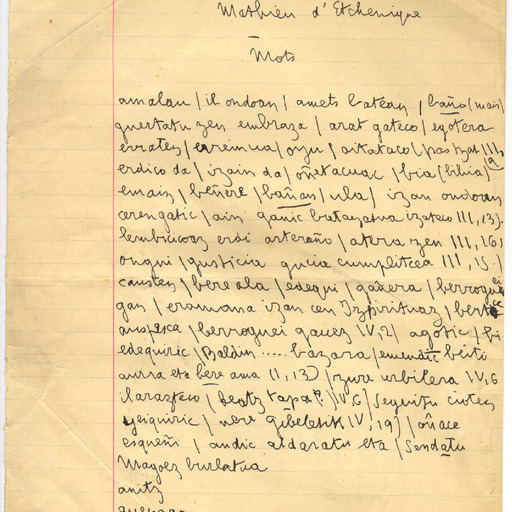 Mathieu d'Etchenique
Mots
amalau / il ondoan / amets batean / baño (mais)
guertatu zen embraza / arat gateco / egotera
erraten / eremua / oyu / aitataco (pas tzat III,
9
erdico da / izain da / oñetacuac / bia (bibia)
emaiz / beñere / bañan / ula / izan ondoan
cerengatic / ain ganic batayatua izateco III, 13).
lembicicoaz erdi arteraño / atera zen III, 16)
ongui / justicia gucia cumplitcea III, 15 /
causten / bere ala / edegui / gañera / berrogue
gau / eramana izan cen Izpirituaz / bert
berroguei gauez IV, 2) agotic / bi
edequiric / Baldin ..... bazara / emendic beiti
aurra eta bere ama II, 13) / zure urbilera IV, 6
ilarazteco / beatz tapa ?) IV, 6 / seguitu cioten
jeiquiric / nere gibeletik IV, 19) / oñace
esqueñi / andic aldaratu eta / sendatu
Magoez burlatua
anitz